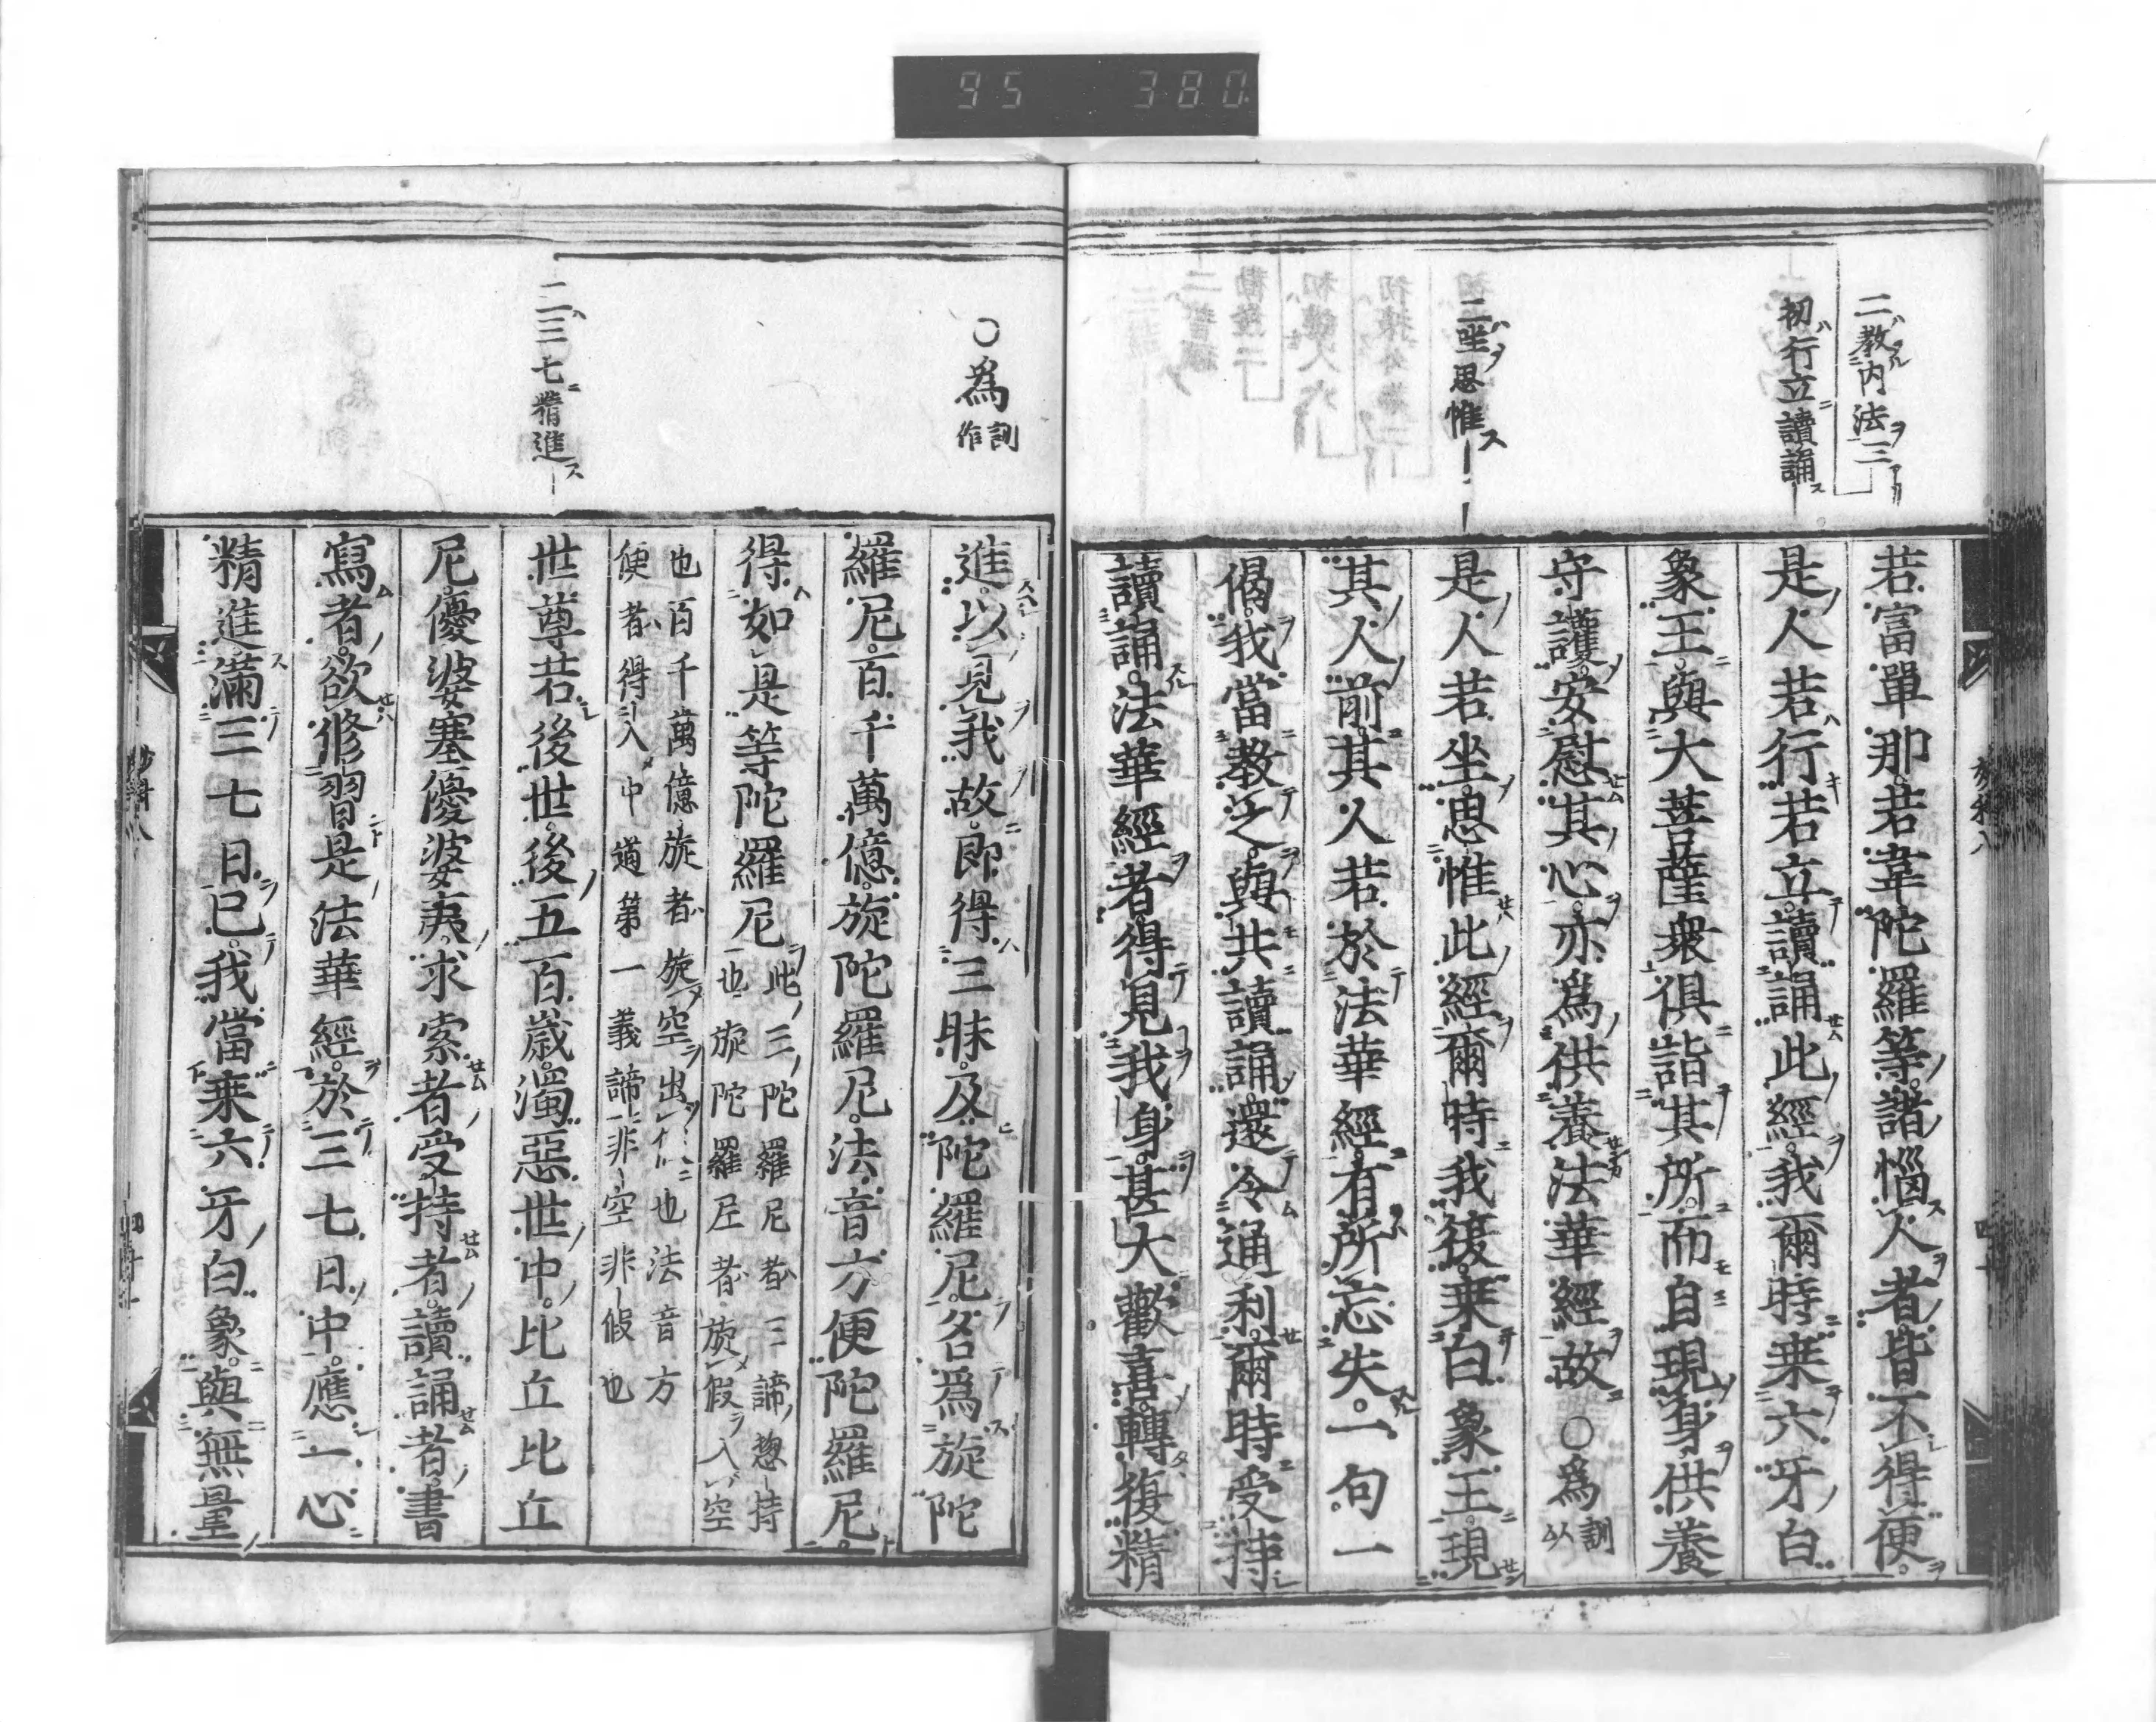 95 380
二教内法三
初行立讀誦
二坐思惟
若富單那若韋陀羅等諸惱人者皆不得便
是人若行若立讀誦此經我爾時乗六牙白
象王與大菩薩衆俱詣其所而自現身供養
守護安慰其心亦爲供養法華經故〇爲訓以
是人若坐思惟此經爾時我復乗白象王現
其人前其人若於法華經有所忘失一句一
偈我當教之與共讀誦還令通利爾時受持
讀誦法華經者得見我身甚大歡喜轉復精
〇爲訓作
二三七精進
進以見我故即得三昧及陀羅尼名爲旋陀
羅尼百千萬億旋陀羅尼法音方便陀羅尼
得如是等陀羅尼
此三陀羅尼者三諦惣持
也旋陀羅尼者旋假入空
也百千萬億旋者旋空出假也法音方
便者得入中道第一義諦非空非假也
世尊若後世後五百歳濁惡世中比丘比丘
尼優婆塞優婆夷求索者受持者讀誦者書
寫者欲修習是法華經於三七日中應一心
精進滿三七日已我當乗六牙白象與無量